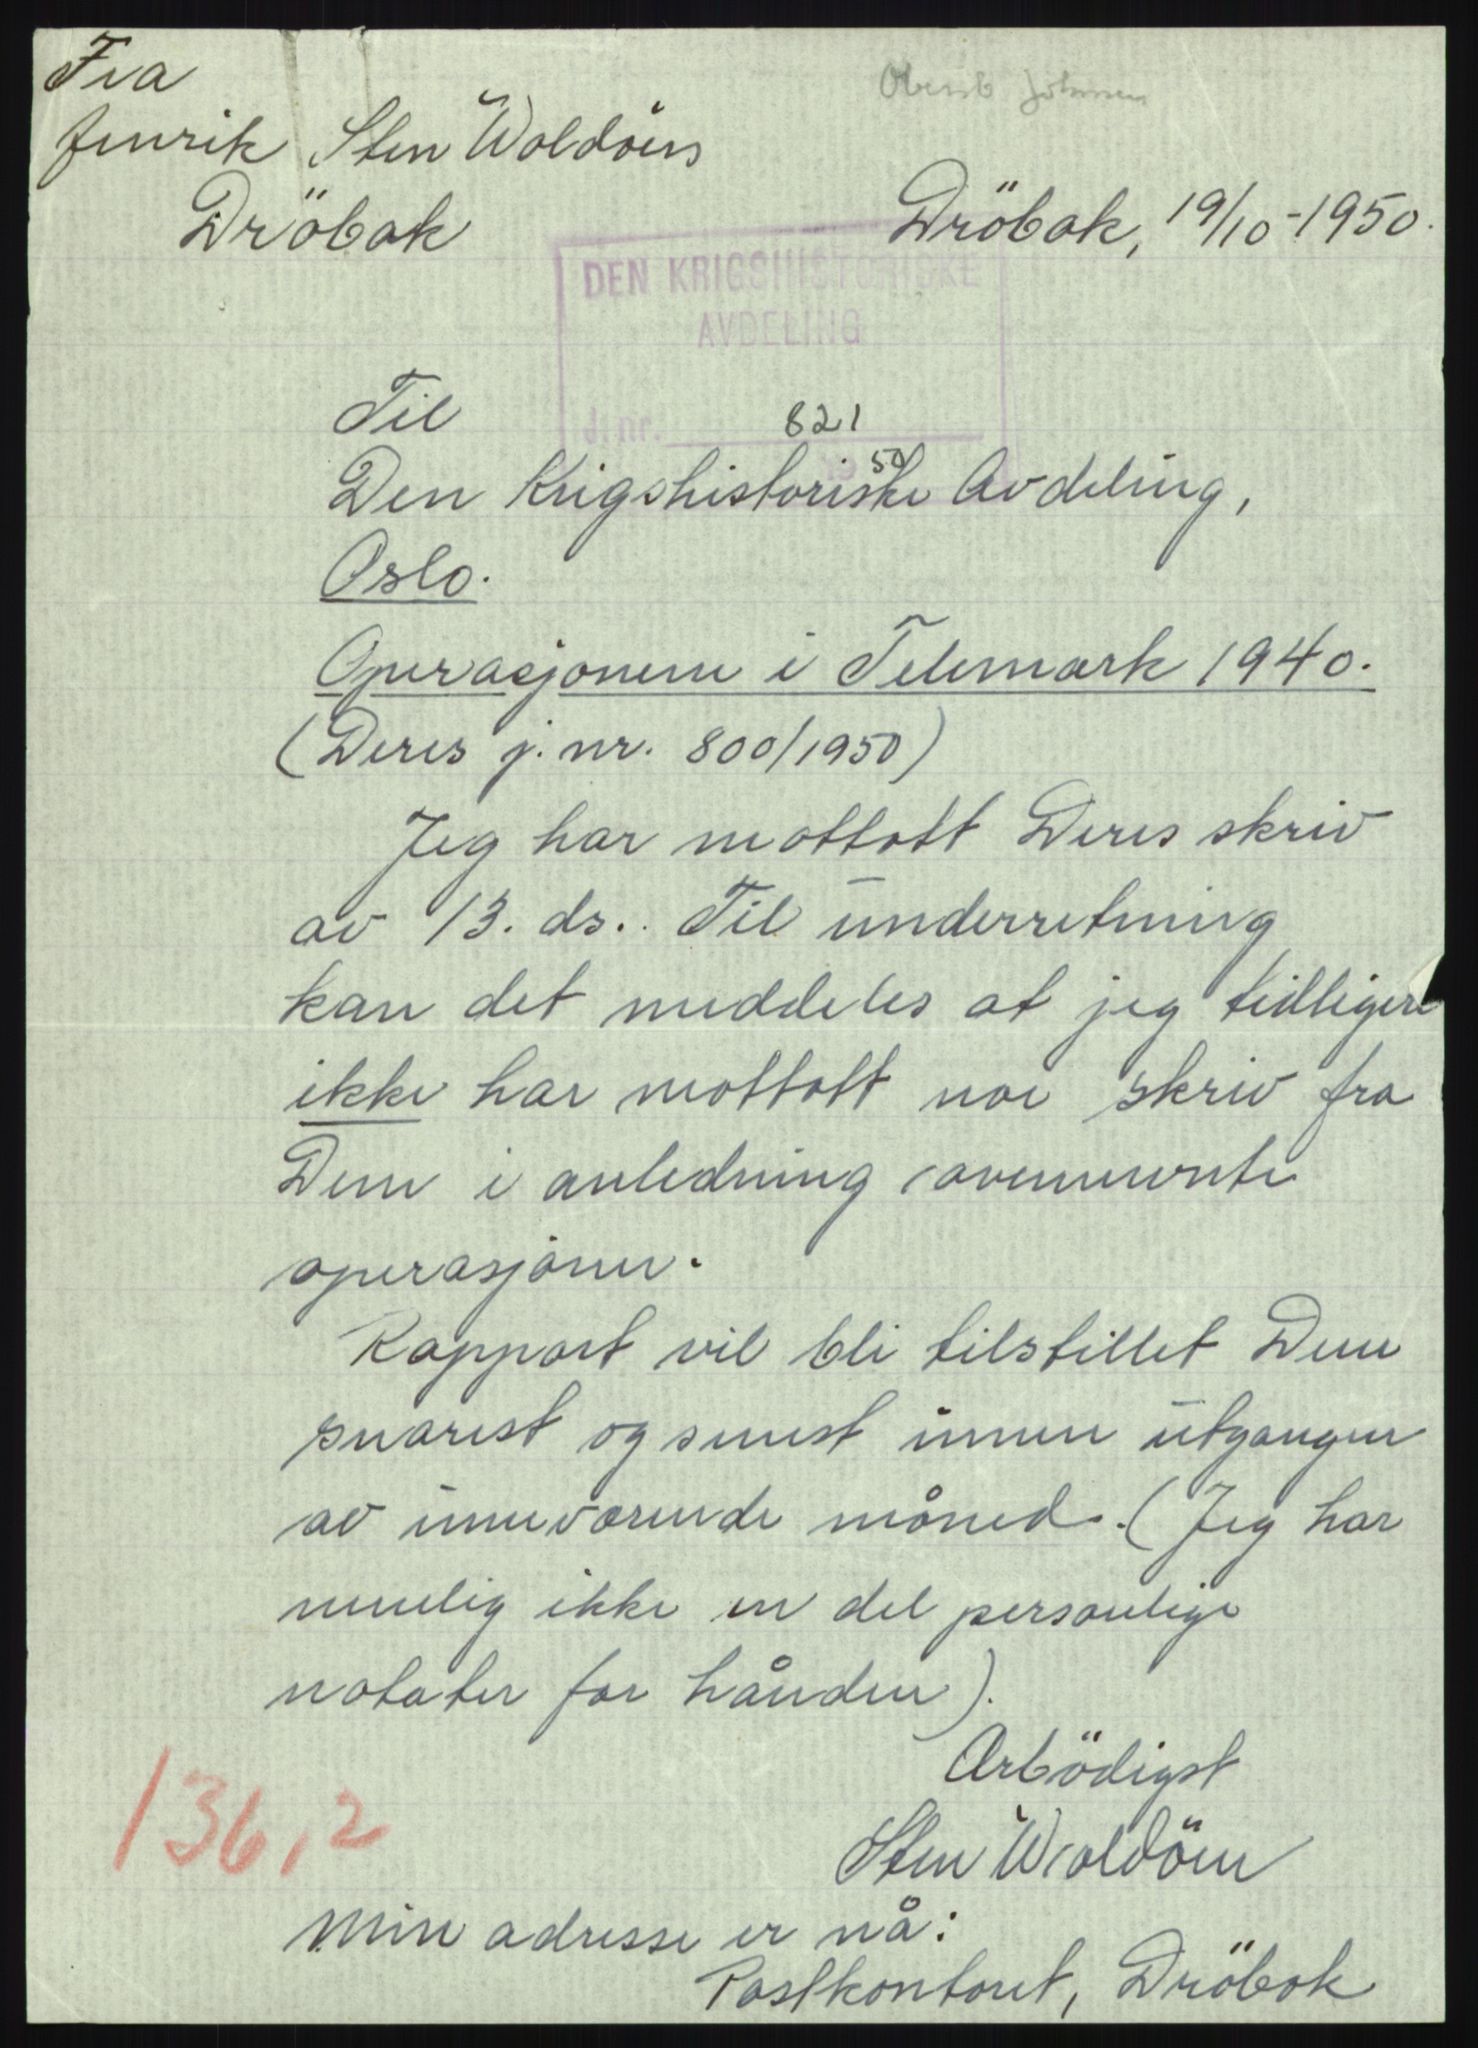 Fra
fenrik Sten Woldöen
Dröbak
Johnsen
Dröbak, 19/10-1950.
DEN KRIGSHISTORISKE
AVDELING
J. nr. 821
50
Til
Den Krigshistoriske Avdeling,
Oslo.
Operasjonene i Telemark 1940.
(Deres j. nr. 800/1950)
Jeg har mottatt Deres skriv
av 13. ds.. Til underretning
kan det meddeles at jeg tidligere
ikke har mottatt noe skriv fra
Dem i anledning ovennevnte
operasjoner.
Rapport vil bli tilstillet Dem
snarest og senest innen utgangen
av inneværende måned. (Jeg har
nemlig ikke en del personlige
notater for hånden).
Ærbödigst
Sten Woldöen
Min adresse er nå:
Postkontoret, Dröbak
136,2